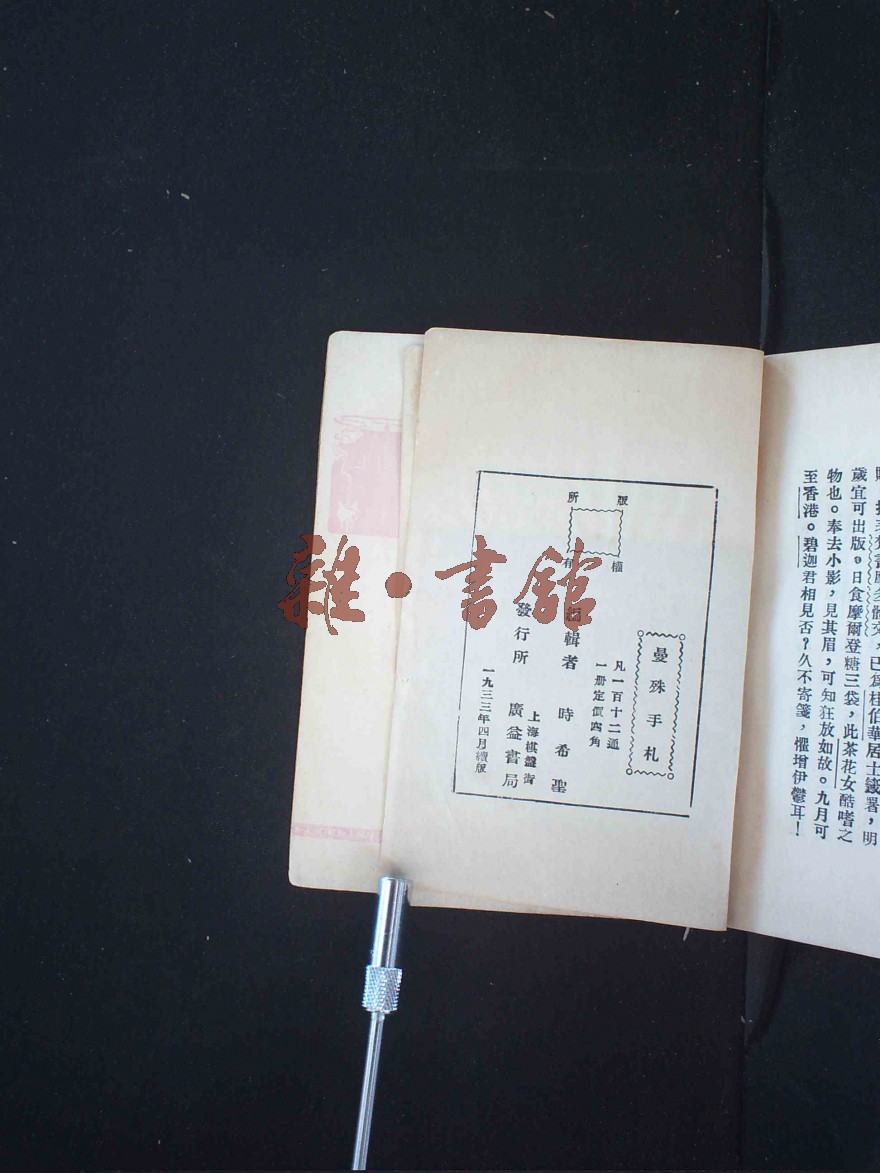 歲宜可出版。日食摩爾登糖三袋，此茶花女酷嗜之
物也。奉去小影，見其眉，可知狂放如故。九月可
至香港。碧迦君相見否？久不寄箋，懼增伊鬱耳！
版權所有
曼殊手札
凡一百十二通
一册定價四角
編輯者 時希聖
發行所 上海棋盤街 廣益書局
一九三三年四月續版
雜·書館